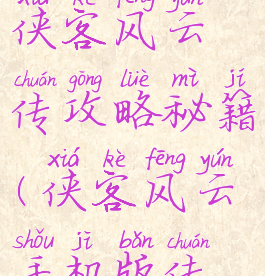 xiá kè fēng yún
侠客风云
chuán gōng lüè mì jí
传攻略秘籍
xiá kè fēng yún
(侠客风云
shǒu jī bǎn chuán
手机版传